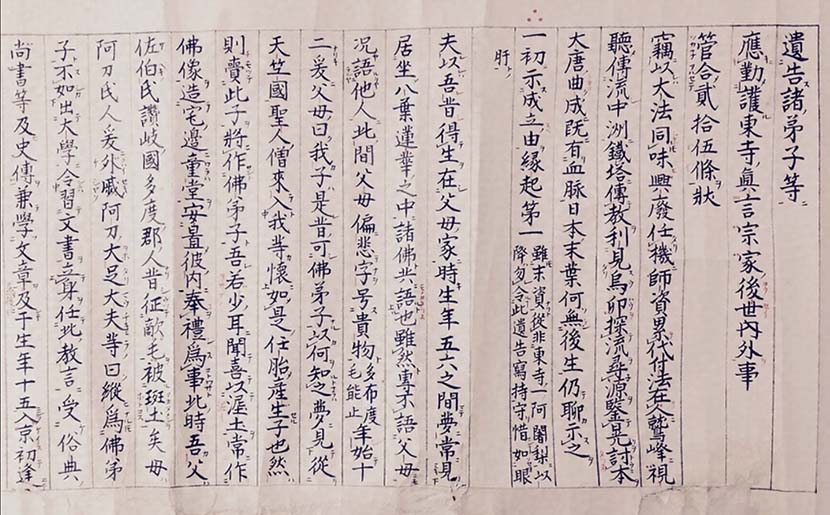 遺告諸弟子等
應勤護東寺眞言宗家後世內外事
管合貳拾伍條狀
竊以大法同味興廢任機師資累代付法在人鷲峰視
聽傳流中洲鐵塔傳教利見烏卯探流尋源鑒晃討本
大唐曲成既有血脉日本末葉何無後生仍聊示之
一初示成立由縁起第一
雖末資從非東寺一阿闍梨以
降勿令此遺告寫持守惜如眼
肝
夫以吾昔得生在父母家時生年五六之間夢常見
居坐八葉蓮華之中諸佛共語也雖然專不語父母
况語他人此間父母偏悲字号貴物多布度毛能止年始十
二爰父母曰我子是昔可佛弟子以何知之夢見從
天竺國聖人僧來入我等懷如是任胎産生子也然
則賷此子將作佛弟子吾若少耳聞喜以渥土常作
佛像造宅邊童堂安置彼內奉禮爲事此時吾父
佐伯氏讚岐國多度郡人昔征敵毛被班土矣母
阿刀氏人爰外戚阿刀大足大夫等曰縱爲佛弟
子不如出大學令習文書立身任此教言受俗典
尚書等及史傳兼學文章及于生年十五入京初逢